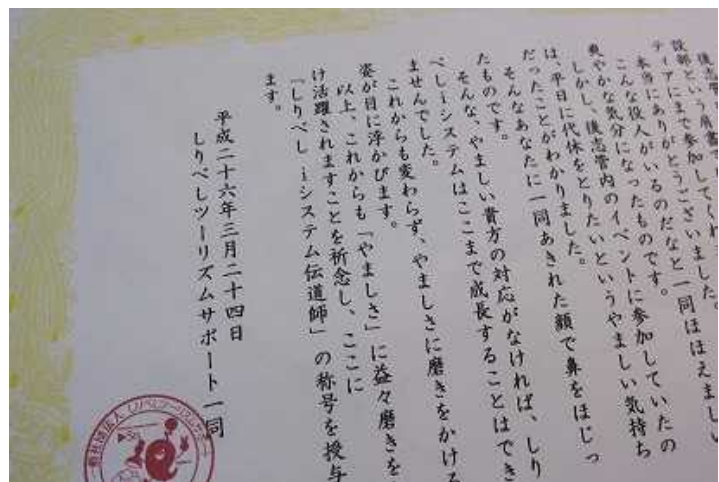 後志管
設部という肩書で
ティアにまで参加してくれ
本当にありがとうございました。
こんな役人がいるのだなと一同ほほえまし
爽やかな気分になったものです。
しかし、後志管内のイベントに参加していたの
は、平日に代休をとりたいというやましい気持ち
だったことがわかりました。
そんなあなたに一同あきれた顔で鼻をほじっ
たものです。
そんな、やましい貴方の対応がなければ、しり
べしiシステムはここまで成長することはでき
ませんでした。
これからも変わらず、やましさに磨きをかける
姿が目に浮かびます。
以上、これからも「やましさ」に益々磨きを
け活躍されますことを祈念し、ここに
「しりべし iシステム伝道師」の称号を授与
ます。
平成二十六年三月二十四日
しりべしツーリズムサポート一同